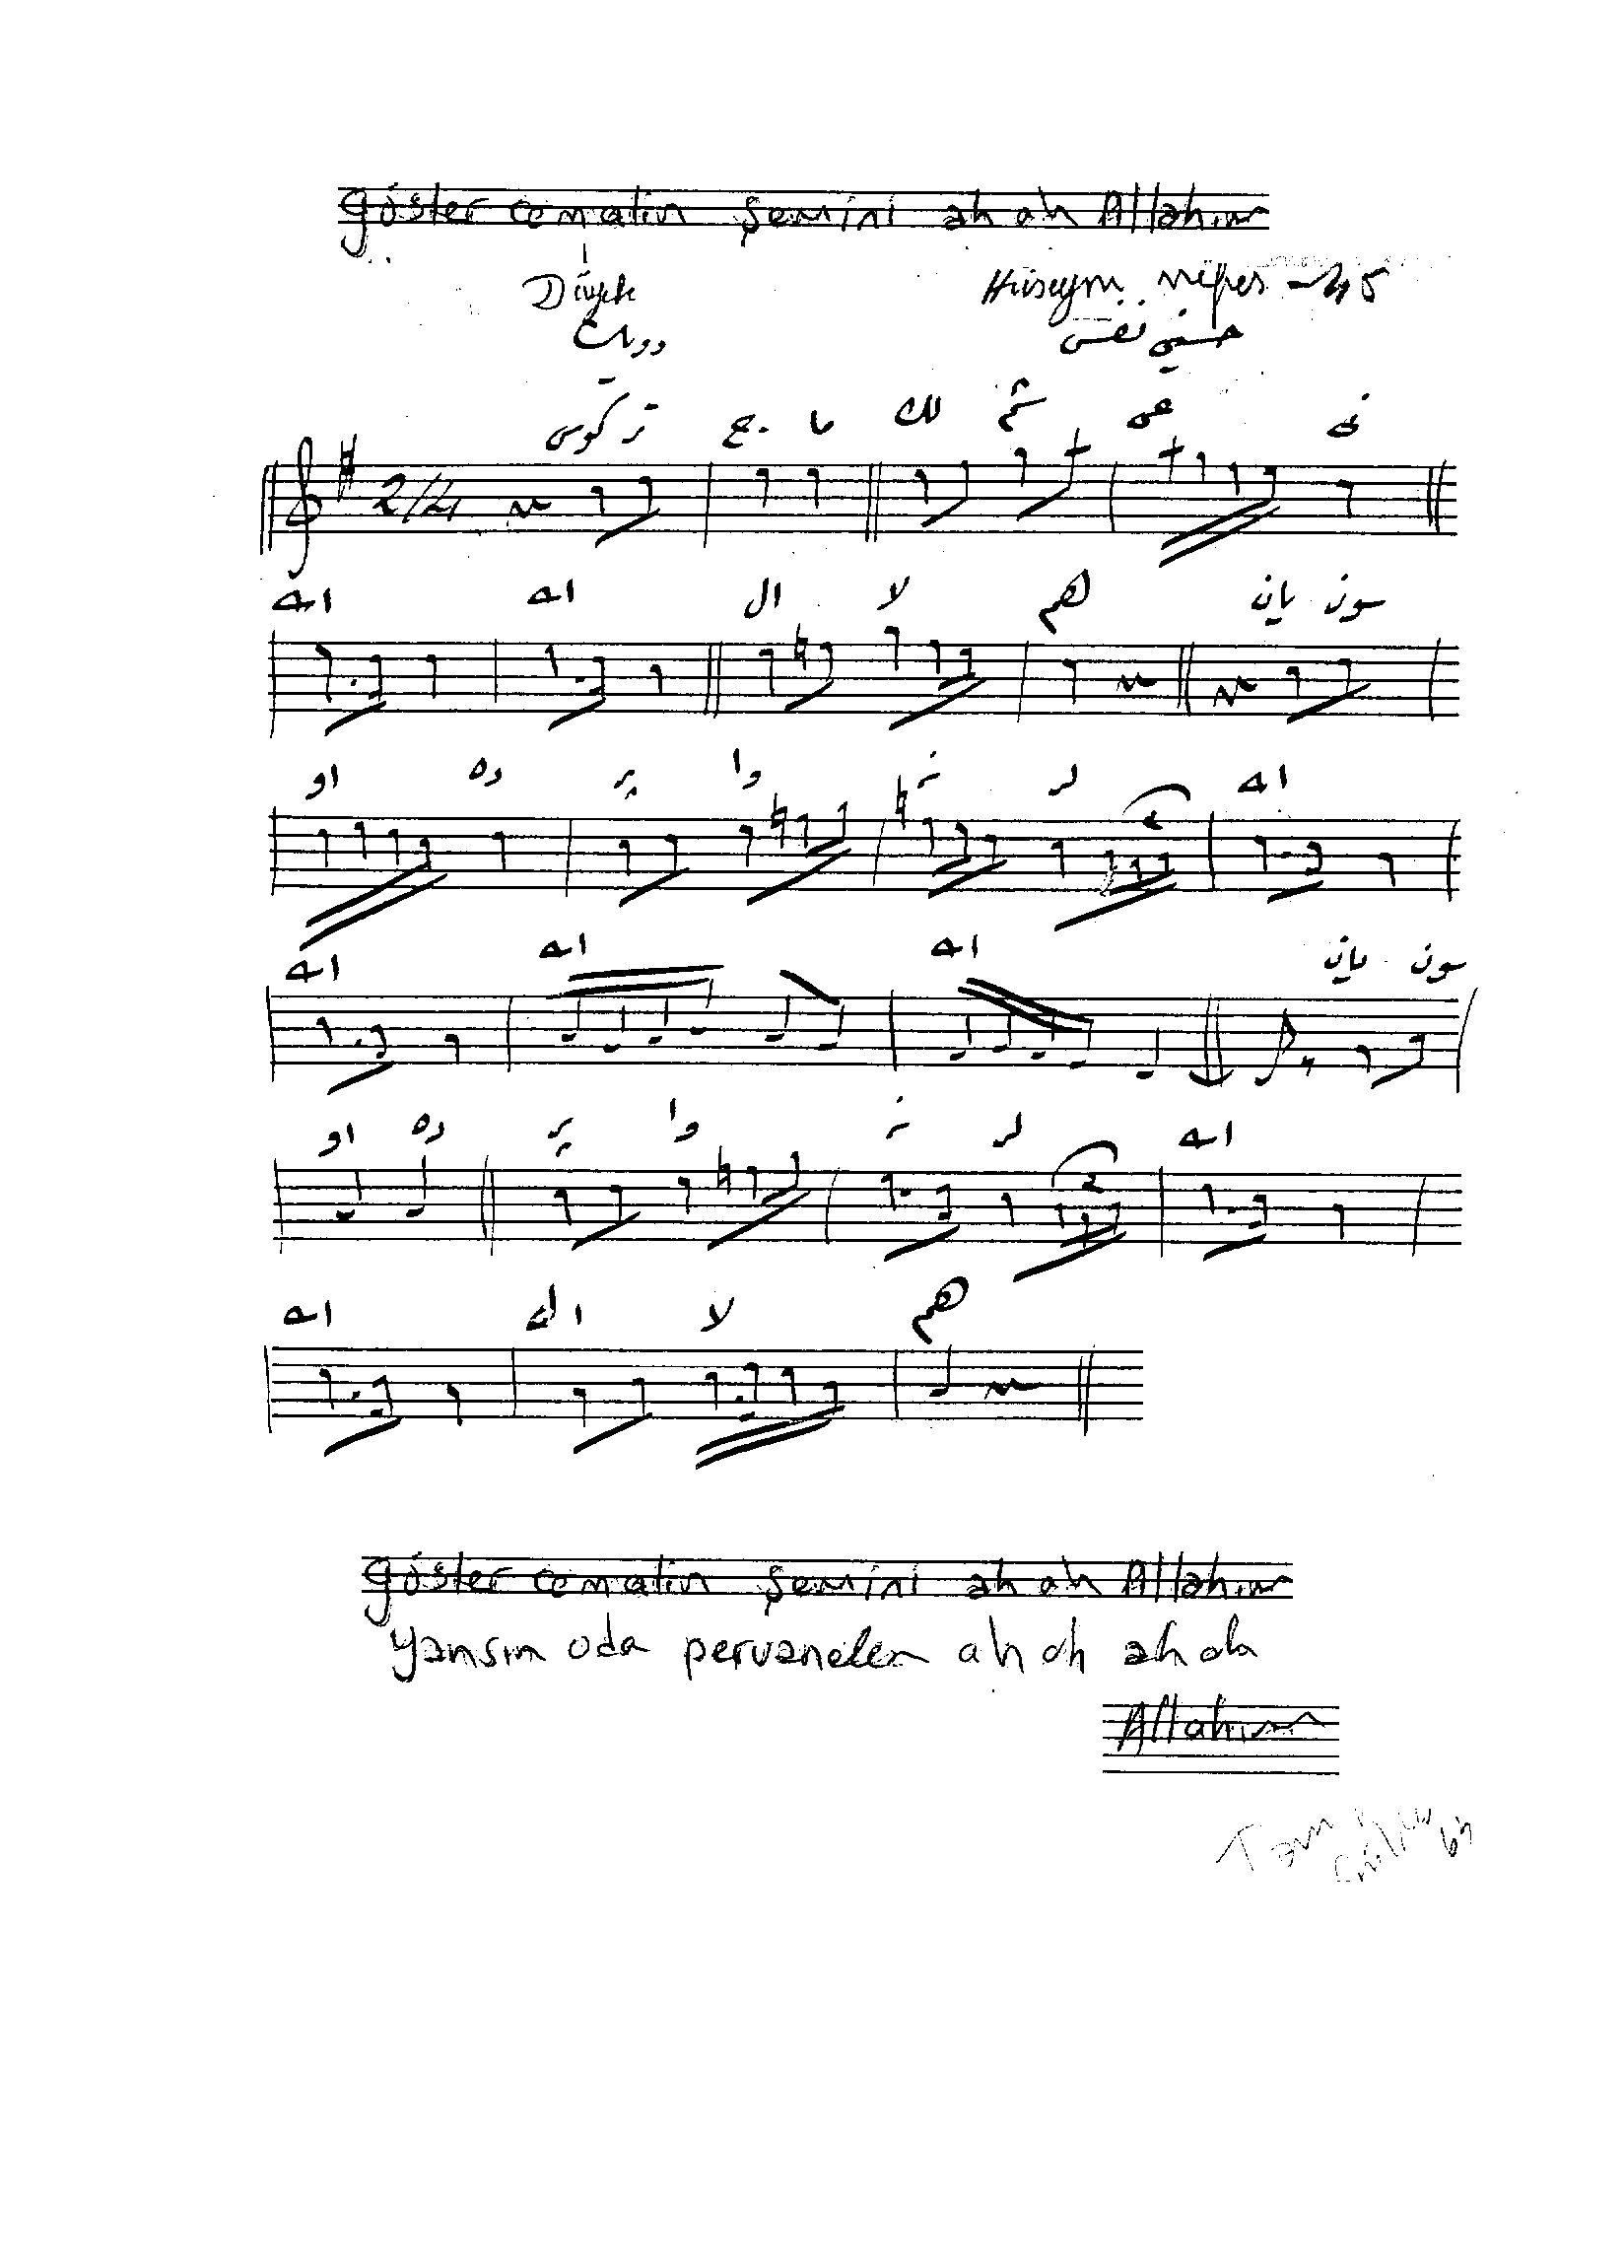 göster cemalin şemini ah ah Allahım
Düyek Hüseyni nefes - 45
حسینی نفس
كوس تر ج ما لك شم عی نی
اه اه ال لا هم يان سون
او ده پر وا نه لر اه
اه اه اه يان سون
او ده پر وا نه لر اه
اه ال لا هم
göster cemalin şemini ah ah Allahım
yansın oda pervaneler ah ah ah ah
Allahım